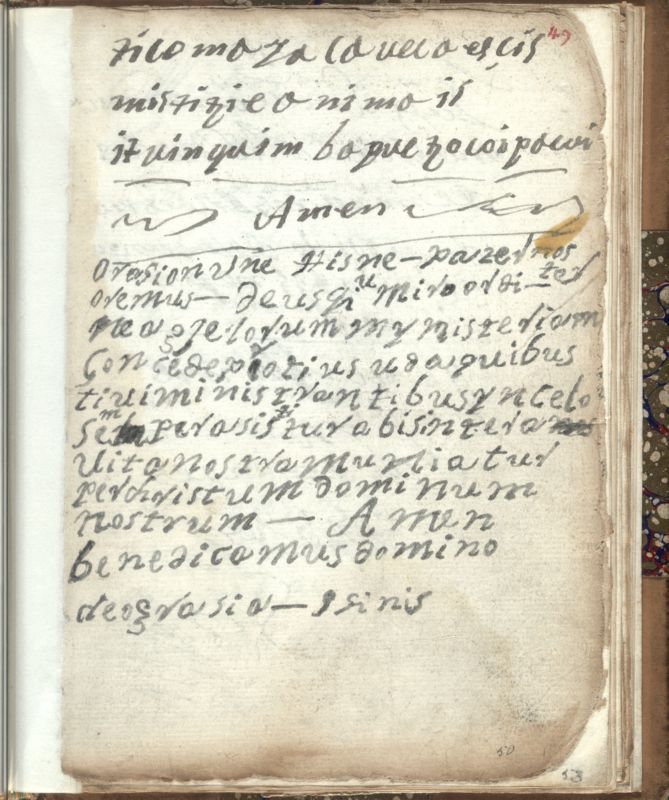 49
ticomo za ca veca escis
mistizie a nimo is
it uinquim ba que zocoi pocui
Amen
orasion une tisne — pa zer nos
oremus — deus qui miro ordi — ter
ne angelorum my misteriam
Concede protius uda quibus
tiui ministrantibus yn celo
sem per asistitur abis in tera
Uita nostra muniatur
per christum dominum
nostrum — Amen
benedicamus domino
deo grasia — Isinis
50
53